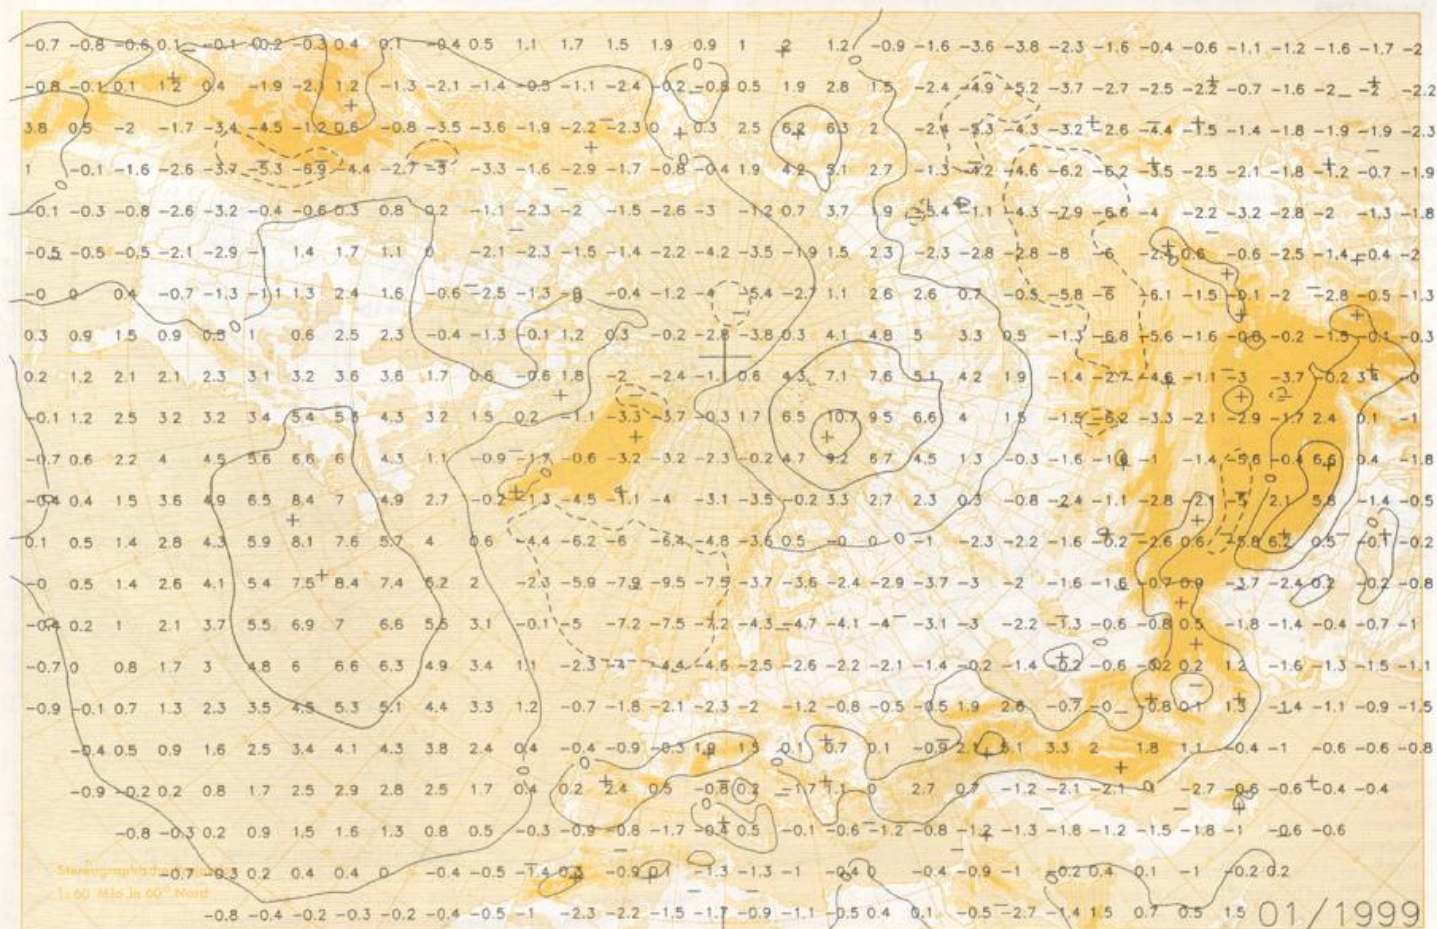 -0.7 -0.8 -0.6 0.1 -0.1 -0.2 -0.3 0.4 0.1 -0.4 0.5 1.1 1.7 1.5 1.9 0.9 1 2 1.2 -0.9 -1.6 -3.6 -3.8 -2.3 -1.6 -0.4 -0.6 -1.1 -1.2 -1.6 -1.7 -2
-0.8 -0.1 0.1 1.2 0.4 -1.9 -2.1 1.2 -1.3 -2.1 -1.4 -0.3 -1.1 -2.4 -0.2 -0.8 0.5 1.9 2.8 1.5 -2.4 -4.9 -5.2 -3.7 -2.7 -2.5 -2.2 -0.7 -1.6 -2 -2 -2.2
3.8 0.5 -2 -1.7 -3.4 -4.5 -1.2 0.6 -0.8 -3.5 -3.6 -1.9 -2.2 -2.3 0 0.3 2.5 6.2 6.3 2 -2.4 -5.3 -4.3 -3.2 -2.6 -4.4 -1.5 -1.4 -1.8 -1.9 -1.9 -2.3
1 -0.1 -1.6 -2.6 -3.7 -5.3 -6.9 -4.4 -2.7 -3 -3.3 -1.6 -2.9 -1.7 -0.8 -0.4 1.9 4.2 5.1 2.7 -1.3 -4.6 -6.2 -6.2 -3.5 -2.5 -2.1 -1.8 -1.2 -0.7 -1.9
-0.1 -0.3 -0.8 -2.6 -3.2 -0.4 -0.6 0.3 0.8 0.2 -1.1 -2.3 -2 -1.5 -2.6 -3 -1.2 0.7 3.7 1.9 -5.4 -1.1 -4.3 -7.9 -6.6 -4 -2.2 -3.2 -2.8 -2 -1.3 -1.8
-0.5 -0.5 -0.5 -2.1 -2.9 -1 1.4 1.7 1.1 0 -2.1 -2.3 -1.5 -1.4 -2.2 -4.2 -3.5 -1.9 1.5 2.3 -2.3 -2.8 -2.8 -8 -6 -2.4 0.6 -0.6 -2.5 -1.4 -0.4 -2
-0 0 0.4 -0.7 -1.3 -1.1 1.3 2.4 1.6 -0.6 -2.5 -1.3 -0 -0.4 -1.2 -4 -5.4 -2.7 1.1 2.6 2.6 0.7 -0.5 -5.8 -6 -6.1 -1.5 -0.1 -2 -2.8 -0.5 -1.3
0.3 0.9 1.5 0.9 0.5 1 0.6 2.5 2.3 -0.4 -1.3 -0.1 1.2 0.3 -0.2 -2.8 -3.8 0.3 4.1 4.8 5 3.3 0.5 -1.3 -6.8 -5.6 -1.6 -0.8 -0.2 -1.5 -0.1 -0.3
0.2 1.2 2.1 2.1 2.3 3.1 3.2 3.6 3.6 1.7 0.6 -0.6 1.8 -2 -2.4 -1 0.6 4.3 7.1 7.6 5.1 4.2 1.9 -1.4 -2.7 -4.6 -1.1 -3 -3.7 -0.2 3.4 -0
-0.1 1.2 2.5 3.2 3.2 3.4 5.4 4.3 3.2 1.5 0.2 -1.1 -3.3 -3.7 -0.3 1.7 6.5 10.7 9.5 6.6 4 1.5 -1.5 -6.2 -3.3 -2.1 -2.9 -1.7 2.4 0.1 -1
-0.7 0.6 2.2 4 4.5 5.6 6.6 6 4.3 1.1 -0.9 -1.7 -0.6 -3.2 -3.2 -2.3 -0.2 4.7 9.2 6.7 4.5 1.3 -0.3 -1.6 -1 -1.4 -5.6 -0.4 6.6 0.4 -1.8
-0.4 0.4 1.5 3.6 4.9 6.5 8.4 7 4.9 2.7 -0.2 -1.3 -4.5 -1.1 -4 -3.1 -3.5 -0.2 3.3 2.7 2.3 0.3 -0.8 -2.4 -1.1 -2.8 -2.1 -5 2.1 5.8 -1.4 -0.5
0.1 0.5 1.4 2.8 4.3 5.9 8.1 7.6 5.7 4 0.6 -4.4 -6.2 -6 -6.4 -4.8 -3.6 0.5 -0 0 -1 -2.3 -2.2 -1.6 -0.2 -2.6 0.6 -5.8 6.2 0.5 -0.1 -0.2
-0 0.5 1.4 2.6 4.1 5.4 7.5 8.4 7.4 6.2 2 -2.3 -5.9 -7.9 -9.5 -7.5 -3.7 -3.6 -2.4 -2.9 -3.7 -3 -2 -1.6 -1.6 -0.7 0.9 -3.7 -2.4 0.2 -0.2 -0.8
-0.4 0.2 1 2.1 3.7 5.5 6.9 7 6.6 5.5 3.1 -0.1 -5 -7.2 -7.5 -7.2 -4.3 -4.7 -4.1 -4 -3.1 -3 -2.2 -1.3 -0.6 -0.8 0.5 -1.8 -1.4 -0.4 -0.7 -1
-0.7 0 0.8 1.7 3 4.8 6 6.6 6.3 4.9 3.4 1.1 -2.3 -4 -4.4 -4.6 -2.5 -2.6 -2.2 -2.1 -1.4 -0.2 -1.4 -0.2 -0.6 -0.2 0.2 1.2 -1.6 -1.3 -1.5 -1.1
-0.9 -0.1 0.7 1.3 2.3 3.5 4.5 5.3 5.1 4.4 3.3 1.2 -0.7 -1.8 -2.1 -2.3 -2 -1.2 -0.8 -0.5 -0.5 1.9 2.6 -0.7 -0 -0.8 0.1 1.3 -1.4 -1.1 -0.9 -1.5
-0.4 0.5 0.9 1.6 2.5 3.4 4.1 4.3 3.8 2.4 0.4 -0.4 -0.9 -0.3 1.9 1.5 0.1 0.7 0.1 -0.9 2.1 5.1 3.3 2 1.8 1.1 -0.4 -1 -0.6 -0.6 -0.8
-0.9 -0.2 0.2 0.8 1.7 2.5 2.9 2.8 2.5 1.7 0.4 0.2 2.4 0.5 -0.8 0.2 -1.7 1.1 0 2.7 0.7 -1.2 -2.1 -2.1 0 -2.7 -0.6 -0.6 -0.4 -0.4
-0.8 -0.3 0.2 0.9 1.5 1.6 1.3 0.8 0.5 -0.3 -0.9 -0.8 -1.7 -0.4 0.5 -0.1 -0.6 -1.2 -0.8 -1.2 -1.3 -1.8 -1.2 -1.5 -1.8 -1 -0.6 -0.6
Stereographische
-0.7 -0.3 0.2 0.4 0.4 0 -0.4 -0.5 -1.4 0.3 -0.9 0.1 -1.3 -1.3 -1 -0.4 0 -0.4 -0.9 -1 -0.2 0.4 0.1 -1 -0.2 0.2
1:60 Mio in 60° Nord
-0.8 -0.4 -0.2 -0.3 -0.2 -0.4 -0.5 -1 -2.3 -2.2 -1.5 -1.7 -0.9 -1.1 -0.5 0.4 0.1 -0.5 -2.7 -1.4 1.5 0.7 0.5 1.5 01/1999